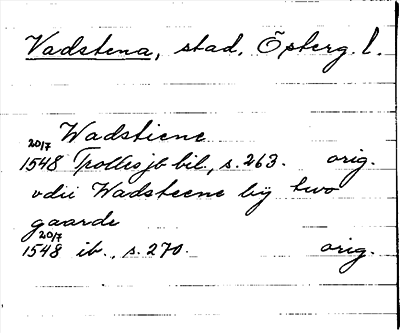 Vadstena, stad. Österg. l.
Wadstiene
20/7
1548 Trolles jb bil., s. 263. orig.
vdii Wadsteene bÿ two
gaarde
20/7
1548 ib., s. 270. orig.